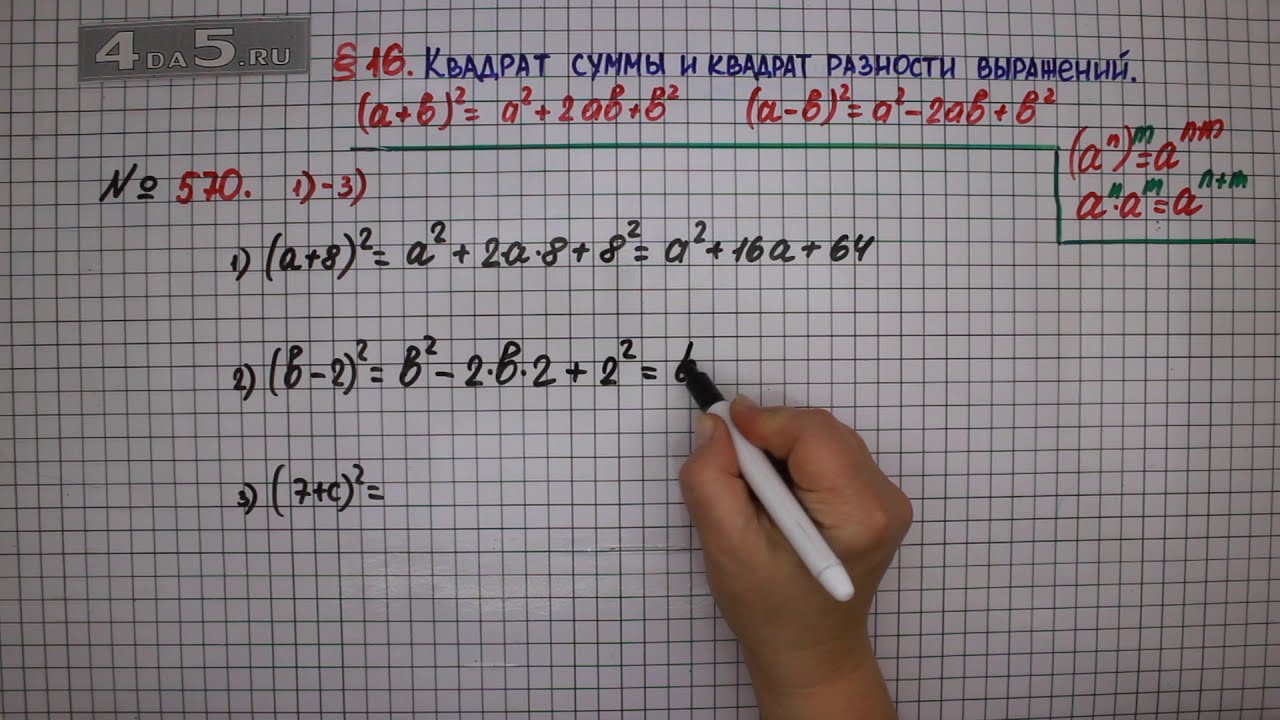 4DA5.RU
§ 16. Квадрат суммы и квадрат разности выражений.
(a+b)² = a² + 2ab + b² (a-b)² = a² - 2ab + b²
(aⁿ)ᵐ = aⁿᵐ
aⁿ·aᵐ = aⁿ⁺ᵐ
№ 570. 1)-3)
1) (a+8)² = a² + 2a·8 + 8² = a² + 16a + 64
2) (b-2)² = b² - 2·b·2 + 2² = b
3) (7+c)² =